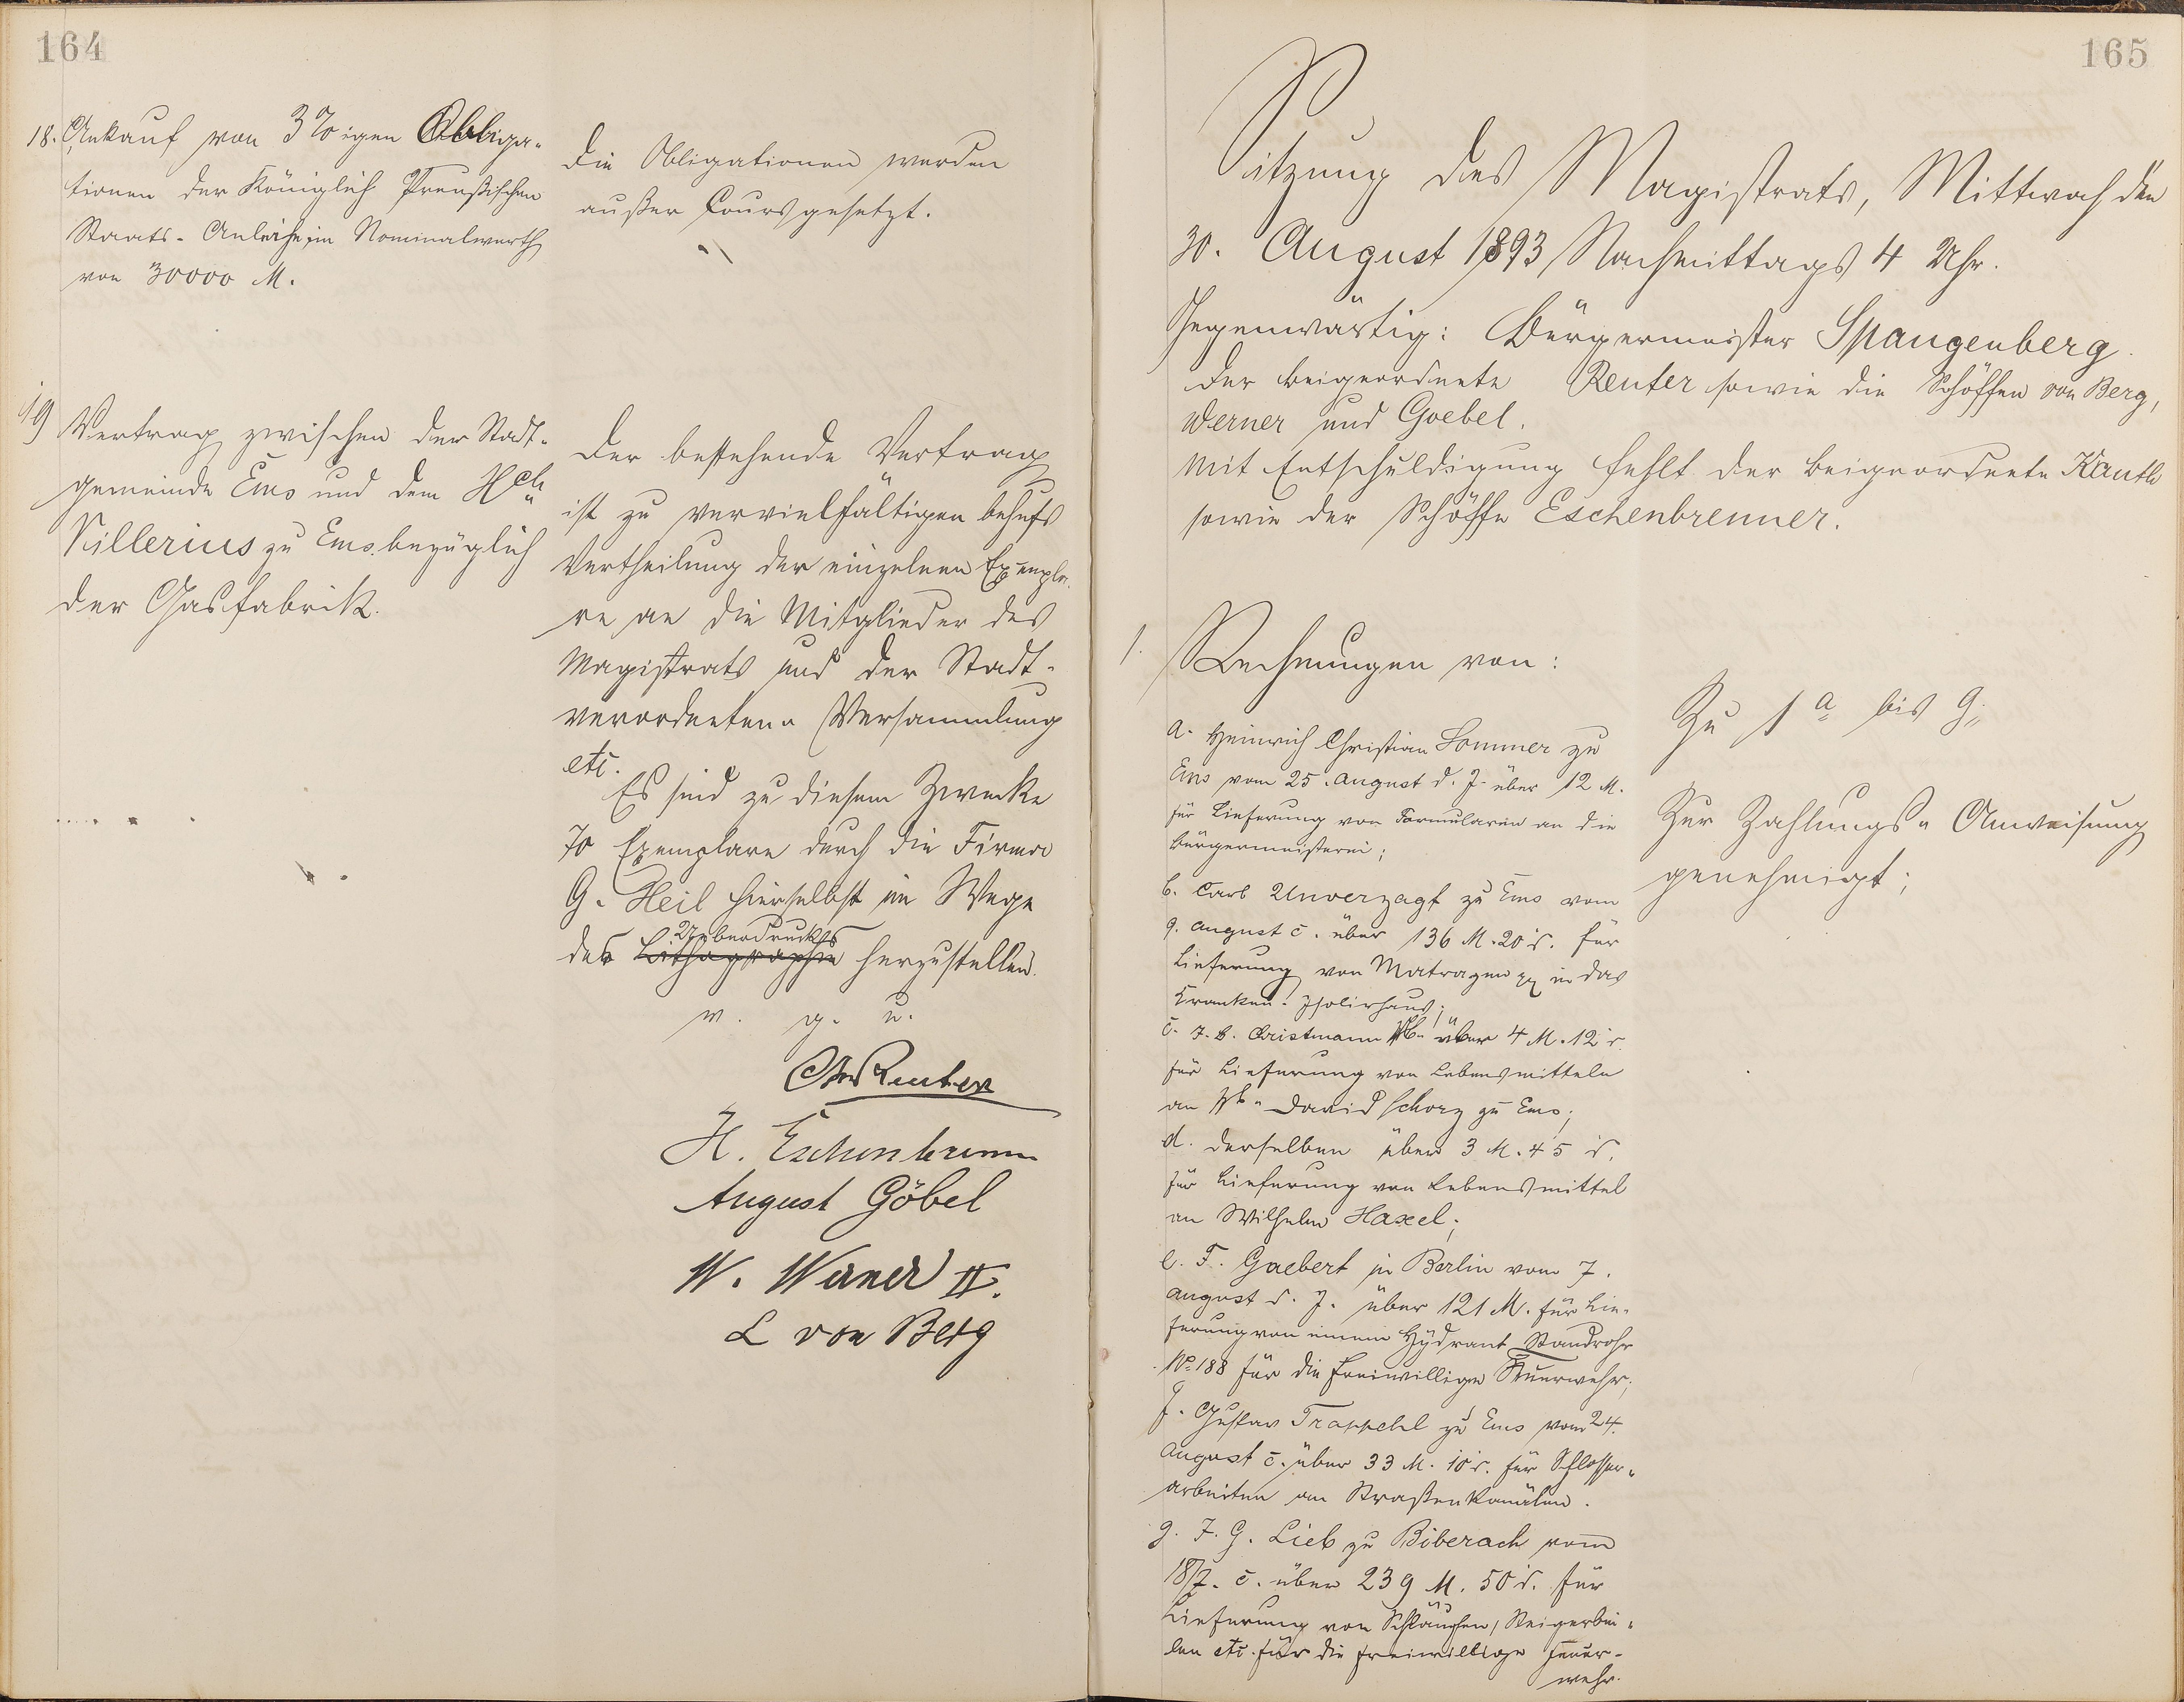 164
18. Ankauf von 3%igen Obliga-
tionen der Königlich Preußischen
Staats-Anleihe, im Nominalwerth
von 30000 M.
Die Obligationen werden
außer Cours gesetzt.
19) Vertrag zwischen der Stadt-
gemeinde Ems und dem Hch
Killerius zu Ems bezüglich
der Gasfabrik.
Der bestehende Vertrag
ist zu vervielfältigen behufs
Vertheilung der einzelnen Exempla-
re an die Mitglieder des
Magistrats und der Stadt-
verordneten-Versammlung
etc.
Es sind zu diesem Zwecke
70 Exemplare durch die Firma
G. Heil hierselbst im Wege
Ueberdrucks
des Lithographie herzustellen.
v. g. u.
Reuter
H. Eschenbrenner
August Göbel
W. Werner II.
L von Berg
165
Sitzung des Magistrats, Mittwoch den
30. August 1893 Nachmittags 4 Uhr.
Gegenwärtig: Bürgermeister Spangenberg.
der Beigeordnete Reuter sowie die Schöffen von Berg,
Werner und Goebel.
Mit Entschuldigung fehlt der Beigeordnete Kauth
sowie der Schöffe Eschenbrenner.
1. Rechnungen von:
a. Heinrich Christian Sommer zu
Ems vom 25. August d. J. über 12 M.
für Lieferung von Formularen an die
Bürgermeisterei;
b. Carl Unverzagt zu Ems vom
9. August c. über 136 M. 20 d. für
Lieferung von Matrazen in das
Kranken-Isolirhaus;
c. J. B. Christmann Wb. über 4 M. 12 d.
für Lieferung von Lebensmitteln
an David Schorz zu Ems;
d. derselben über 3 M. 45 d.
für Lieferung von Lebensmittel
an Wilhelm Haxel;
e. F. Gaebert in Berlin vom 7.
August d. J. über 121 M. für Lie-
ferung von einem Hydrant Standrohr
No. 188 für die freiwillige Feuerwehr;
f. Gustav Trappehl zu Ems vom 24.
August c. über 33 M. 10 d. für Schlosser-
arbeiten an Straßenkanälen.
g. J. G. Lieb zu Biberach vom
18/7. c. über 239 M. 50 d. für
Lieferung von Schläuchen, Steigerbei-
len etc. für die freiwillige Feuer-
wehr.
Zu 1 a bis g.
Zur Zahlungs-Anweisung
genehmigt;